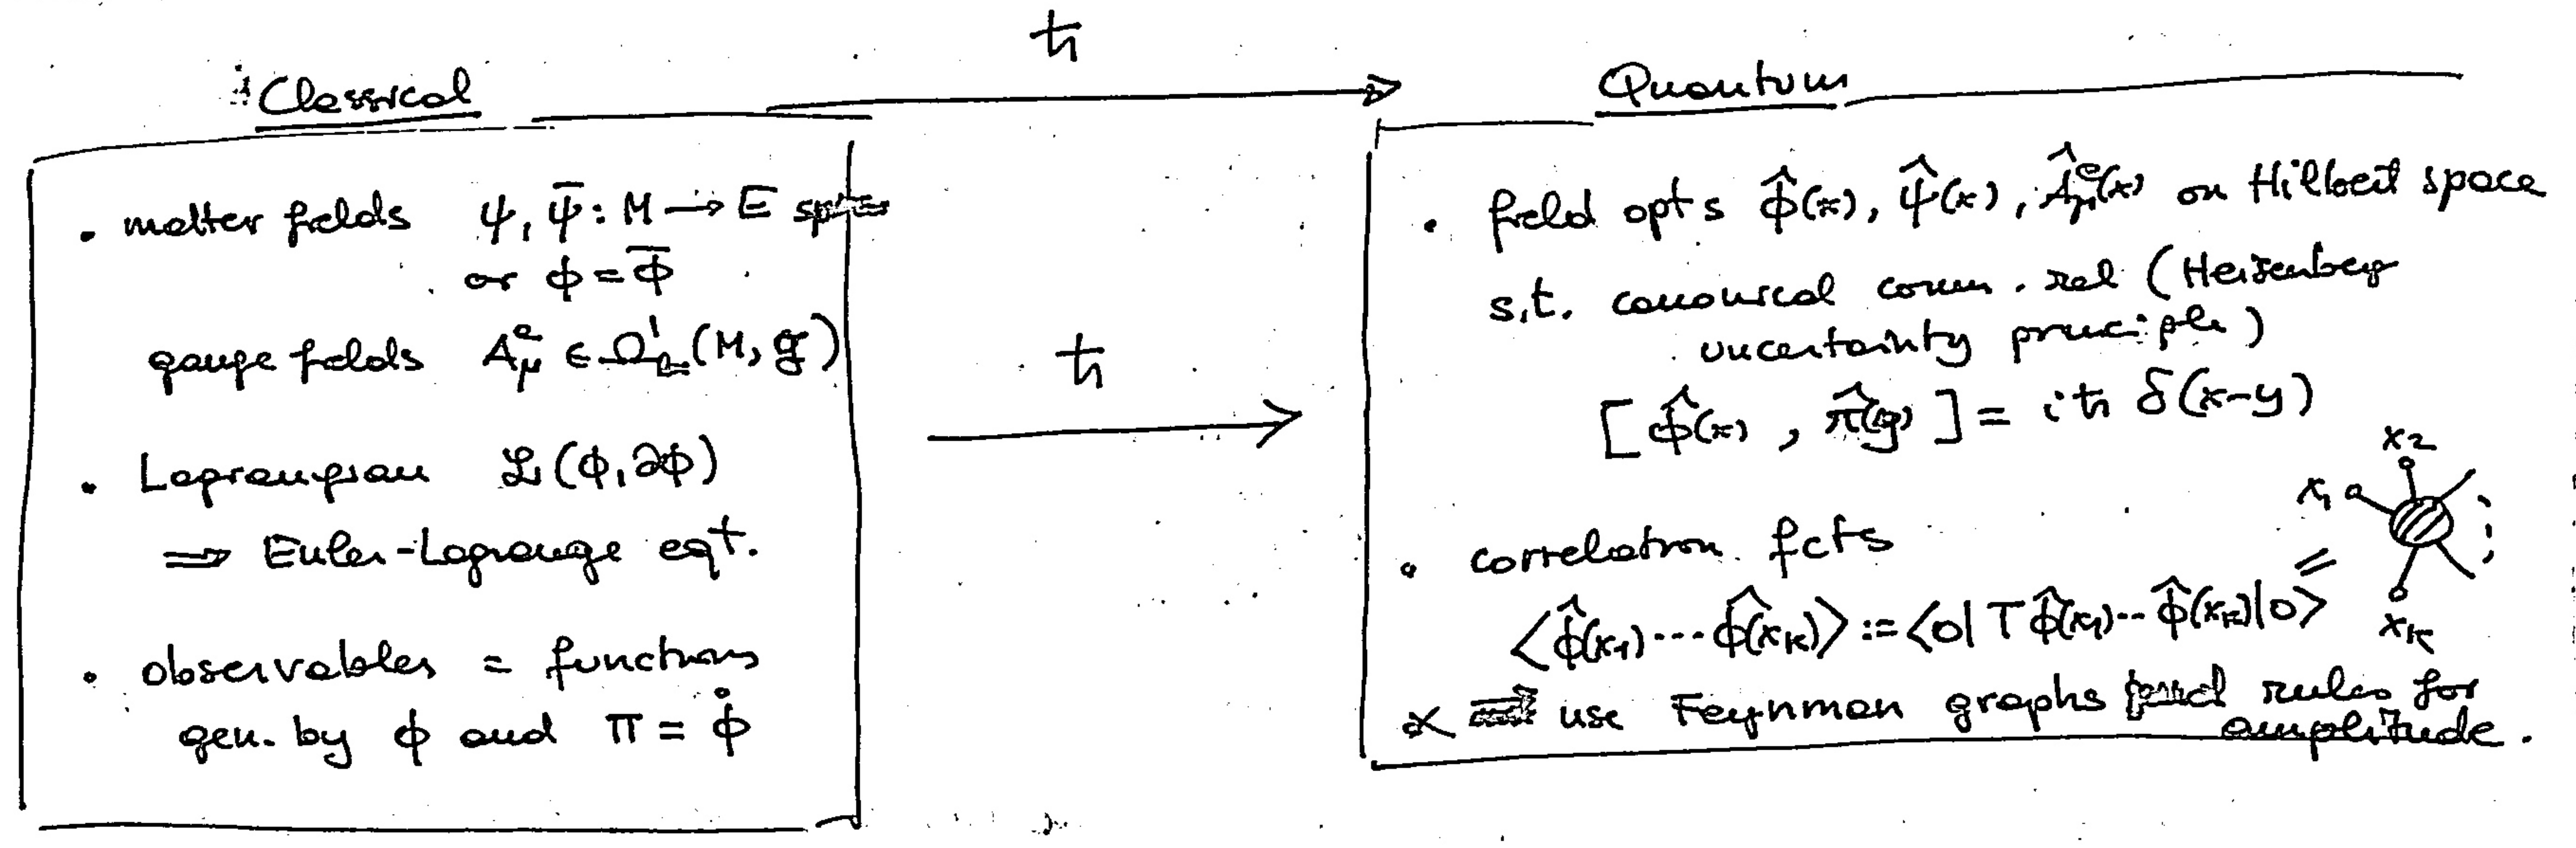 ℏ
Classical
Quantum
• matter fields ψ, ψ̄ : M → E
or ϕ = ϕ̄
gauge fields A^a_μ ∈ Ω^1 (M, g)
• Lagrangian ℒ(ϕ, ∂ϕ)
⇒ Euler-Lagrange eqt.
• observables = functions
gen. by ϕ and Π = ϕ̇
ℏ
• field opts ϕ̂(x), ψ̂(x), Â^a_μ(x) on Hilbert space
s.t. canonical comm. rel (Heisenberg
uncertainty principle)
[ϕ̂(x), π̂(y)] = iℏ δ(x-y)
• correlation fcts
⟨ϕ̂(x₁) ··· ϕ̂(x_k)⟩ := ⟨0| T ϕ̂(x₁) ·· ϕ̂(x_k) |0⟩ =
x₂
x₁
x_k
use Feynman graphs and rules for
amplitude.